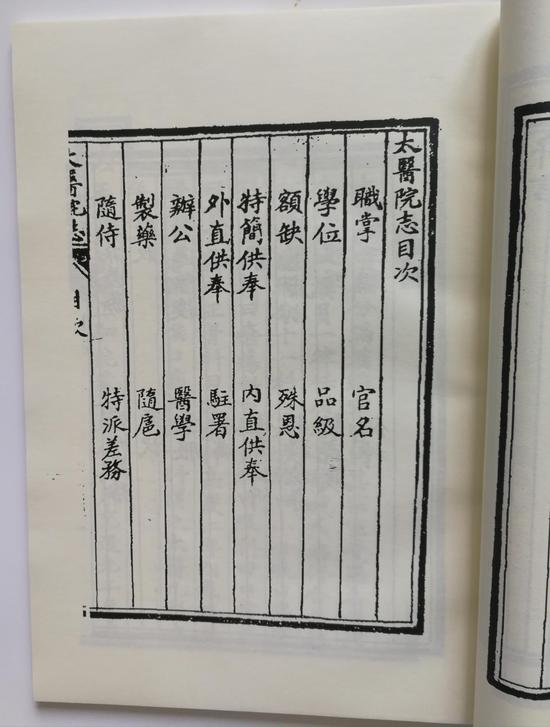 太醫院志目次
職掌 官名
學位 品級
額缺 殊恩
特簡供奉 內直供奉
外直供奉 駐署
辦公 醫學
製藥 隨扈
隨侍 特派差務
太醫院志 目次